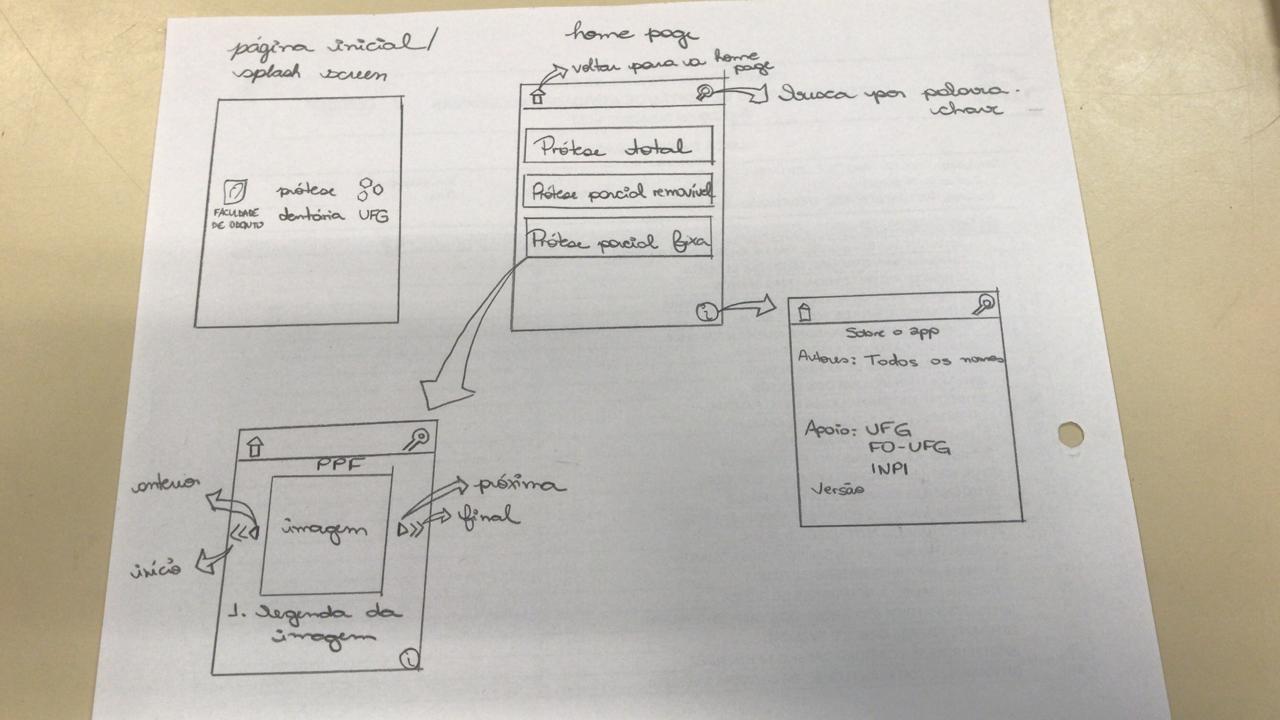 página inicial/
splash screen
FACULDADE
DE ODONTO
prótese
dentária UFG
home page
voltar para a home
page
busca por palavra-
chave
Prótese total
Prótese parcial removível
Prótese parcial fixa
i
Sobre o app
Autores: Todos os nomes
Apoio: UFG
FO-UFG
INPI
Versão
PPF
anterior
início
imagem
próxima
final
1. legenda da
imagem
i